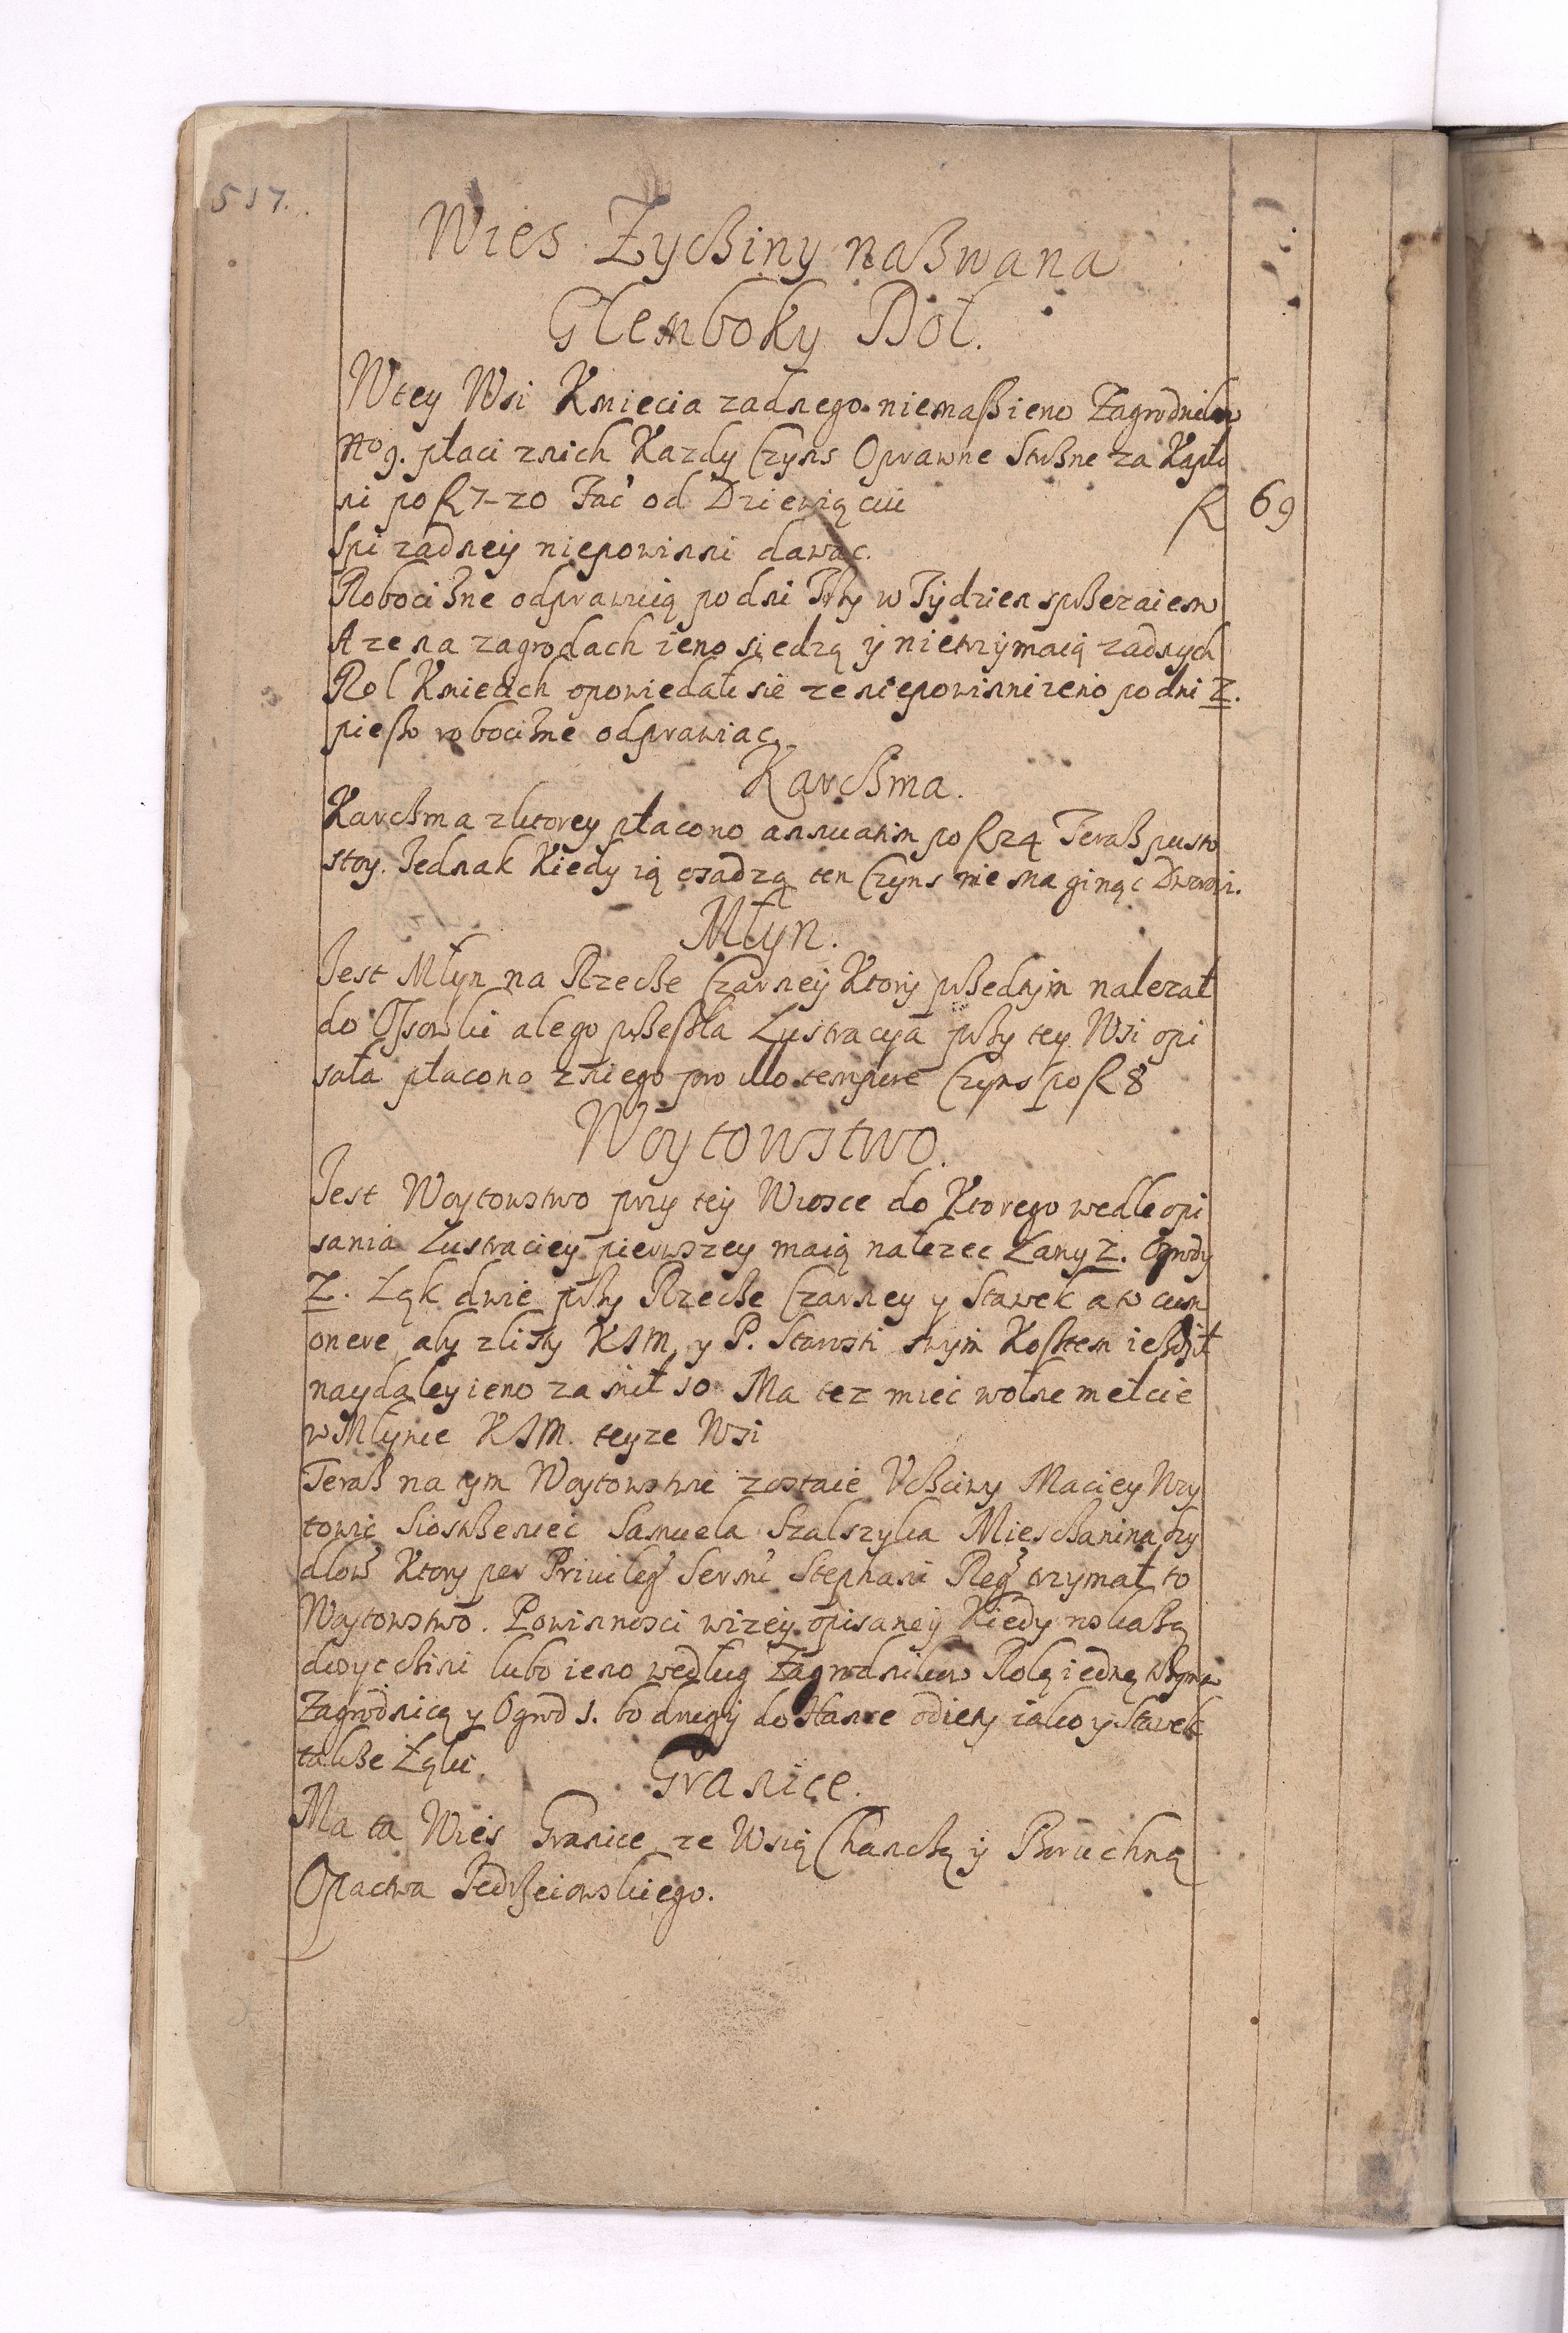 517.
Wies Zychiny naßwana
Glemboky Dol.
Wtey Wsi Kmiecia zadnego niemaß ieno Zagrodnikow
Nro 9. płaci znich Kazdy Czyns Oprawne Strozne za Kapło
ni po fl 7-20 Fac' od Dziewiąciu fl 69
Spi zadney niepowinni dawac.
Robocißne odprawuią po dni Trzy w Tydzien
A ze na zagrodach ieno siedzą ÿ nietrzymaią zadnych
Rol Kmiecich opowiedali sie ze niepowinni ieno po dni 2.
pießo robocißne odprawiac.
Karcßma.
Karcßma zktorey płacono annuatim po fl 24 Teraß pusto
stoy. Jednak Kiedy ią osadzą ten Czyns nie ma ginąc Dworowi.
Młyn.
Jest Młyn na Rzecße Czarney Ktory pßedtym nalezał
do Ossowki ale go pßeßła Lustracya pßy tey Wsi opi
sała płacono zniego pro illo tempore Czyns po fl 8
Woytowstwo.
Jest Woytowstwo przy tey Wiosce do Ktorego wedle opi
sania Lustraciey pierwszey maią nalezec Lany 2. Ogrody
2. Łąk dwie pßy Rzecße Czarney y Stawek a to cum
onere aby zlisty KJM. y P. Starosti swym Kosztem iezdził
naydaley ieno za mil 10 Ma tez miec wolne melcie
w Młynie KJM. teyze Wsi
Teraß na tym Woytowstwie zostaie Vcßciwy Maciey Wzy
towic Siostßeniec Samuela Szalszyka Miescßanina Szy
dlow' Ktory per Privileg' Sermi Stephani Reg' trzymał to
Woytowstwo. Powinnosci wizey opisaney Kiedy
lubo ieno według Zagrodnikow Rolą iedną
Zagrodnicą y Ogrod 1. bo drugi do odiety iako y Stawek
takße Łąki.
Granice.
Ma ta Wies Granice ze Wsią Chancßą ÿ Poruchną
Opactwa Jedrßeiowskiego.